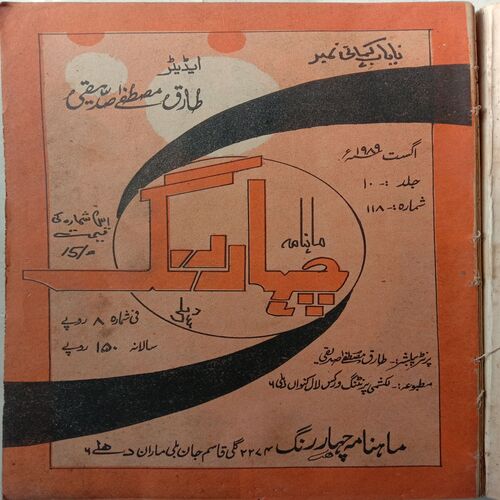 نایاب کہانی نمبر
ایڈیٹر
طارق مصطفےٰ صدیقی
اگست ۱۹۸۹ء
جلد :- ۱۰
شمارہ :- ۱۱۸
اس شمارہ کی
قیمت
15/=
ماہنامہ
چہار رنگ
دہلی
فی شمارہ ۸ روپے
سالانہ ۱۵۰ روپے
پرنٹر پبلشر :- طارق مصطفےٰ صدیقی
مطبوعہ :- لکشمی پرنٹنگ ورکس لال کنواں دہلی ۶
ماہنامہ چہار رنگ ۲۲۷۴ گلی قاسم جان بلی ماران دہلی ۶